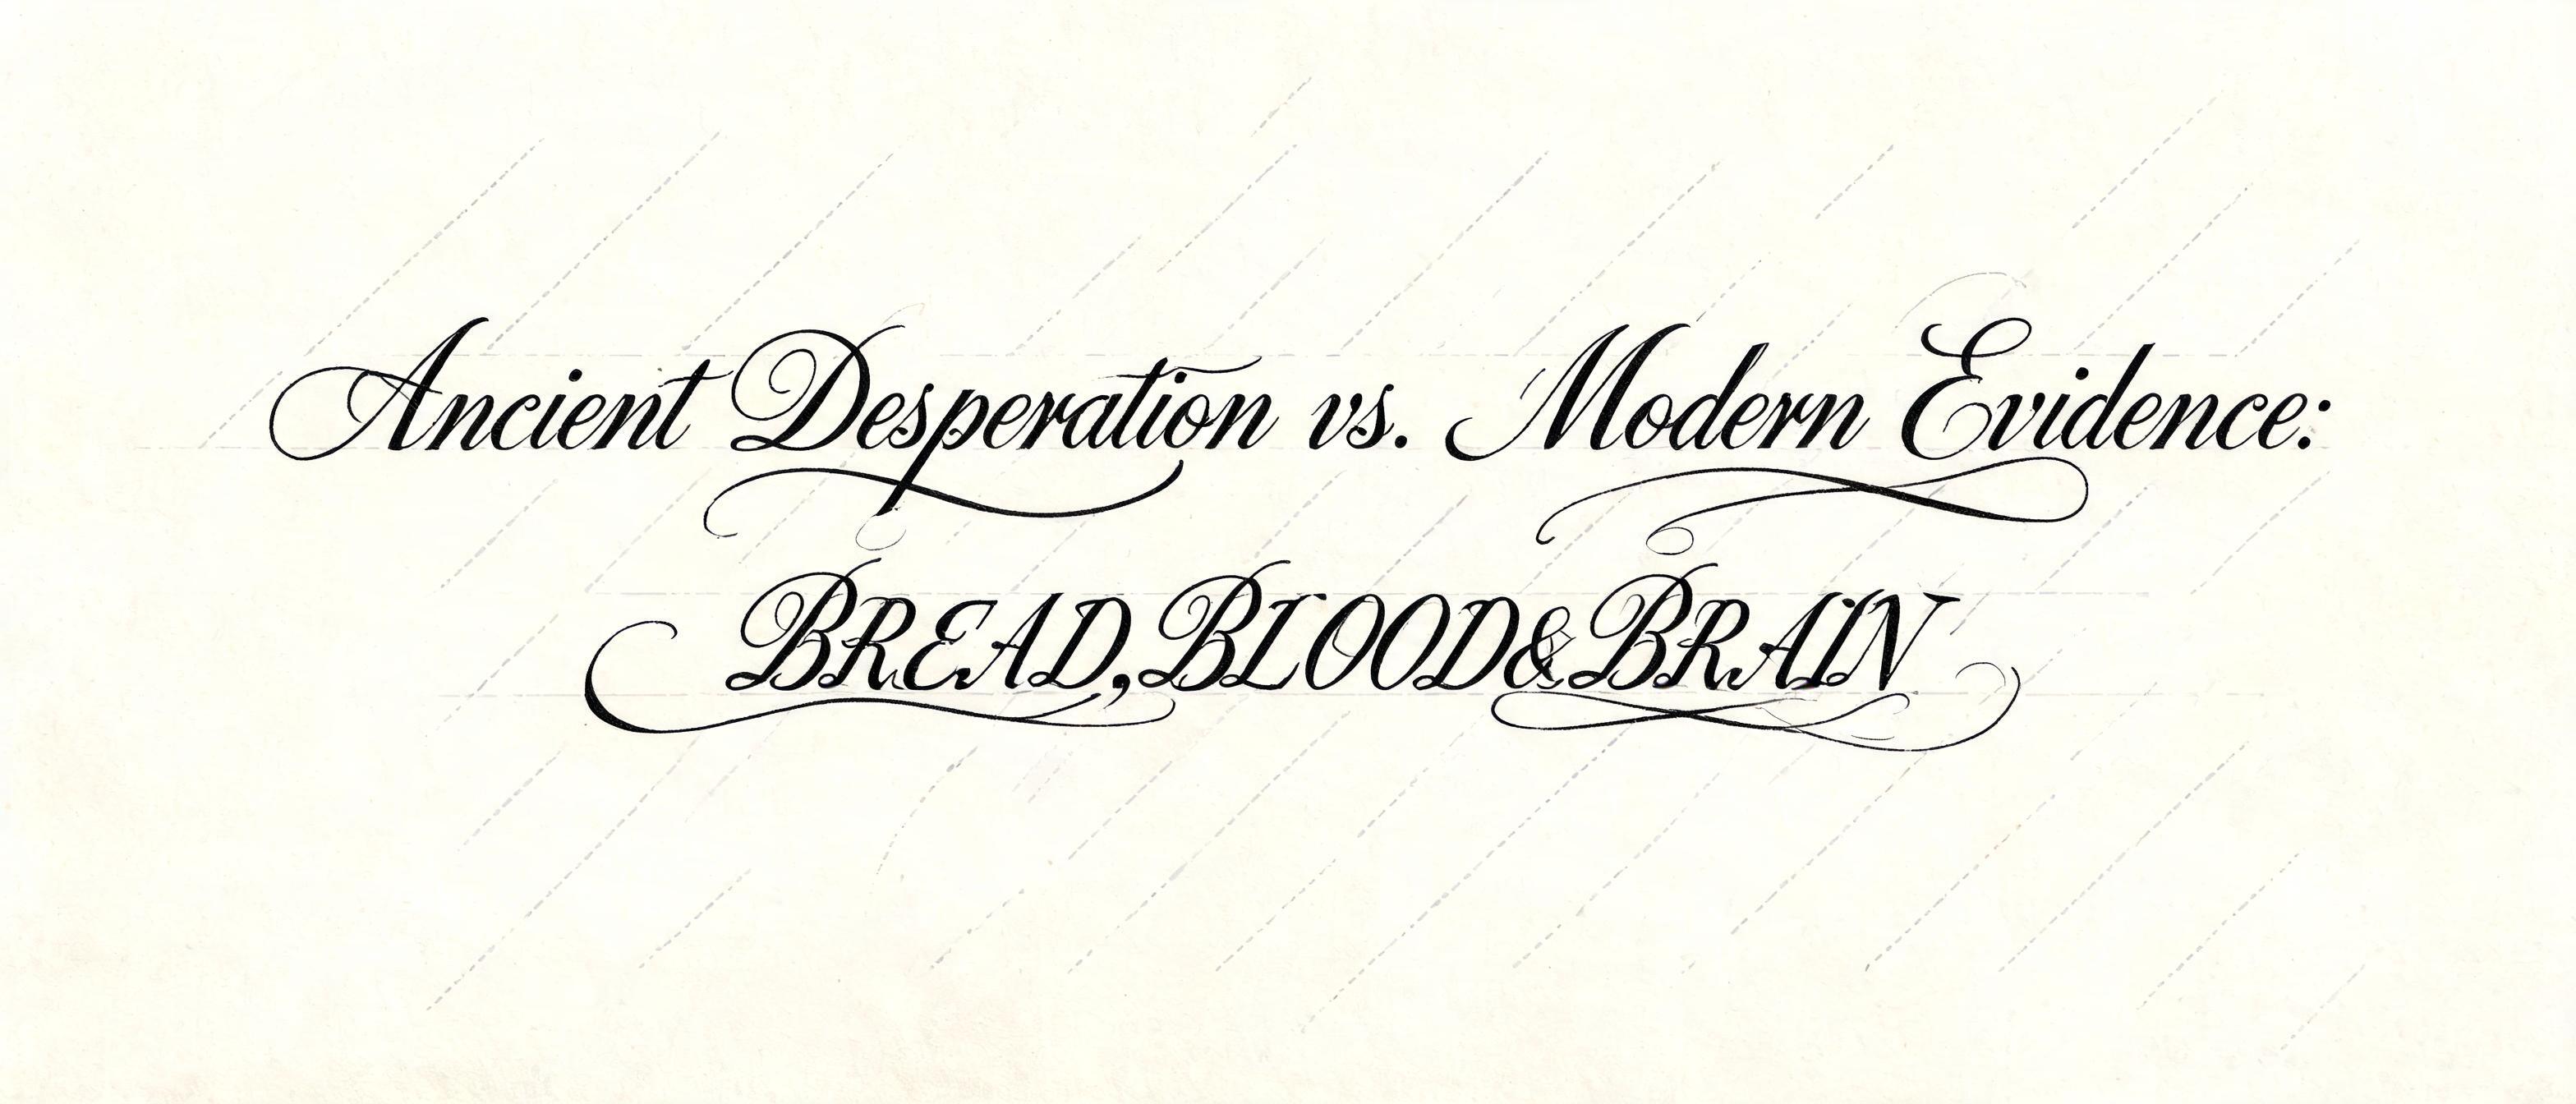 Ancient Desperation vs. Modern Evidence:
BREAD, BLOOD & BRAIN